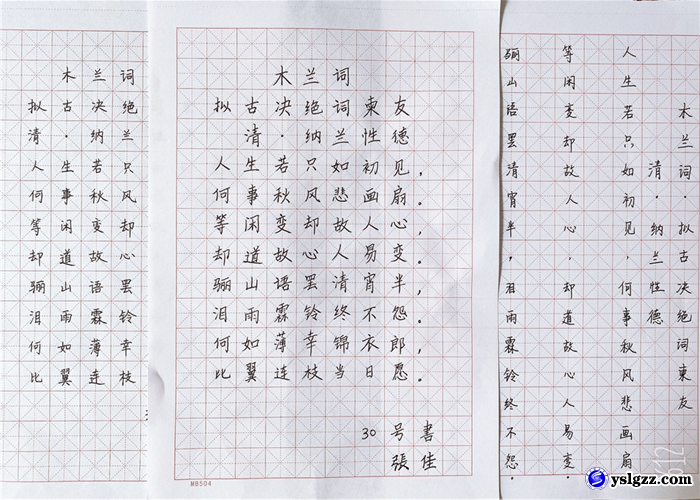 木兰词
拟古决绝
清·纳兰
人生若只
何事秋风
等闲变却
却道故心
骊山语罢
泪雨霖铃
何如薄幸
比翼连枝
木兰词
拟古决绝词柬友
清·纳兰性德
人生若只如初见，
何事秋风悲画扇。
等闲变却故人心，
却道故心人易变。
骊山语罢清宵半，
泪雨霖铃终不怨。
何如薄幸锦衣郎，
比翼连枝当日愿。
30号書
張佳
M8504
木兰词·拟古决绝词柬友
清·纳兰性德
人生若只如初见，何事秋风悲画扇
等闲变却故人心，却道故心人易变.
骊山语罢清宵半，泪雨霖铃终不怨.
yslgzz.com